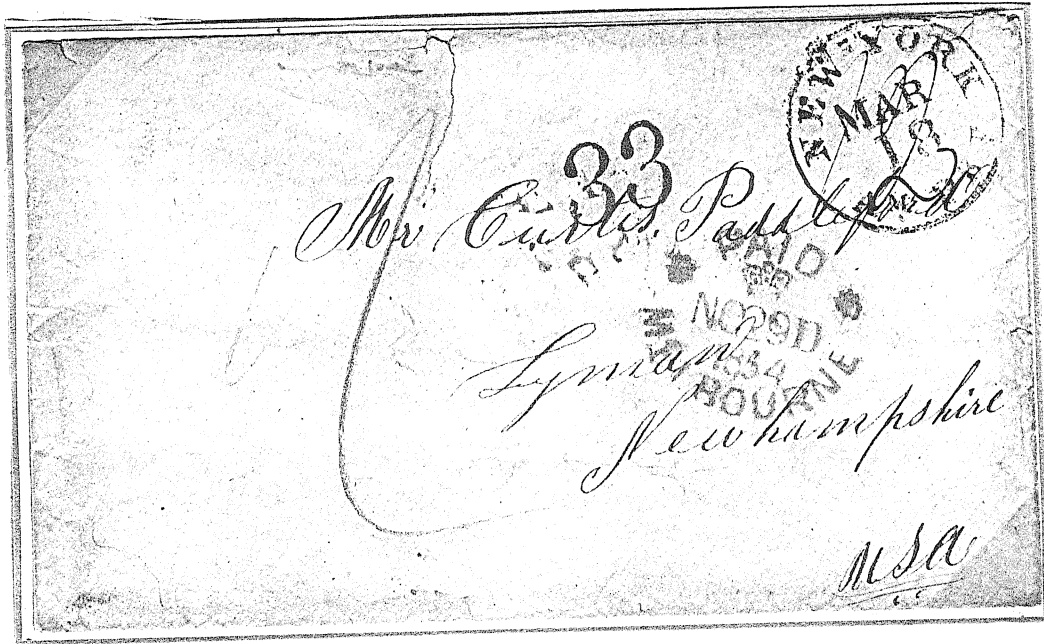 NEW-YORK
MAR
18
33
Mr Curtis. Paddleford
PAID
NO29D
1854
BOURNE
Lyman
Newhampshire
USA